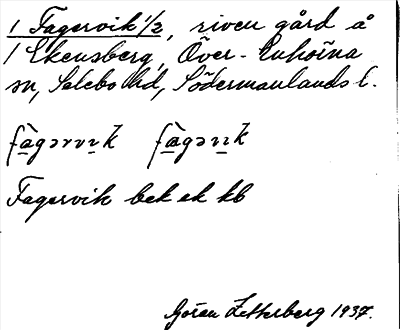 1 Fagervik 1/2, riven gård å
1 Ekensberg, Över-Enhörna
sn, Selebo hd, Södermanlands l.
fàgərvɪk fàgəvɪk
Fagervik bek ek kb
Gösta Zetterberg 1937.